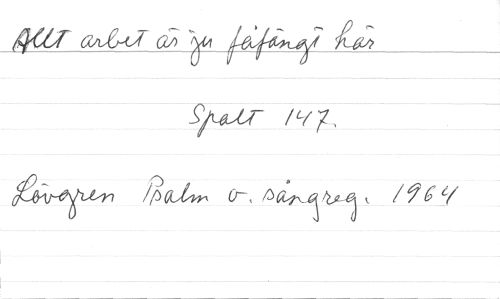 Allt arbet är ju fåfängt här
Spalt 147.
Lövgren Psalm o. sångreg. 1964